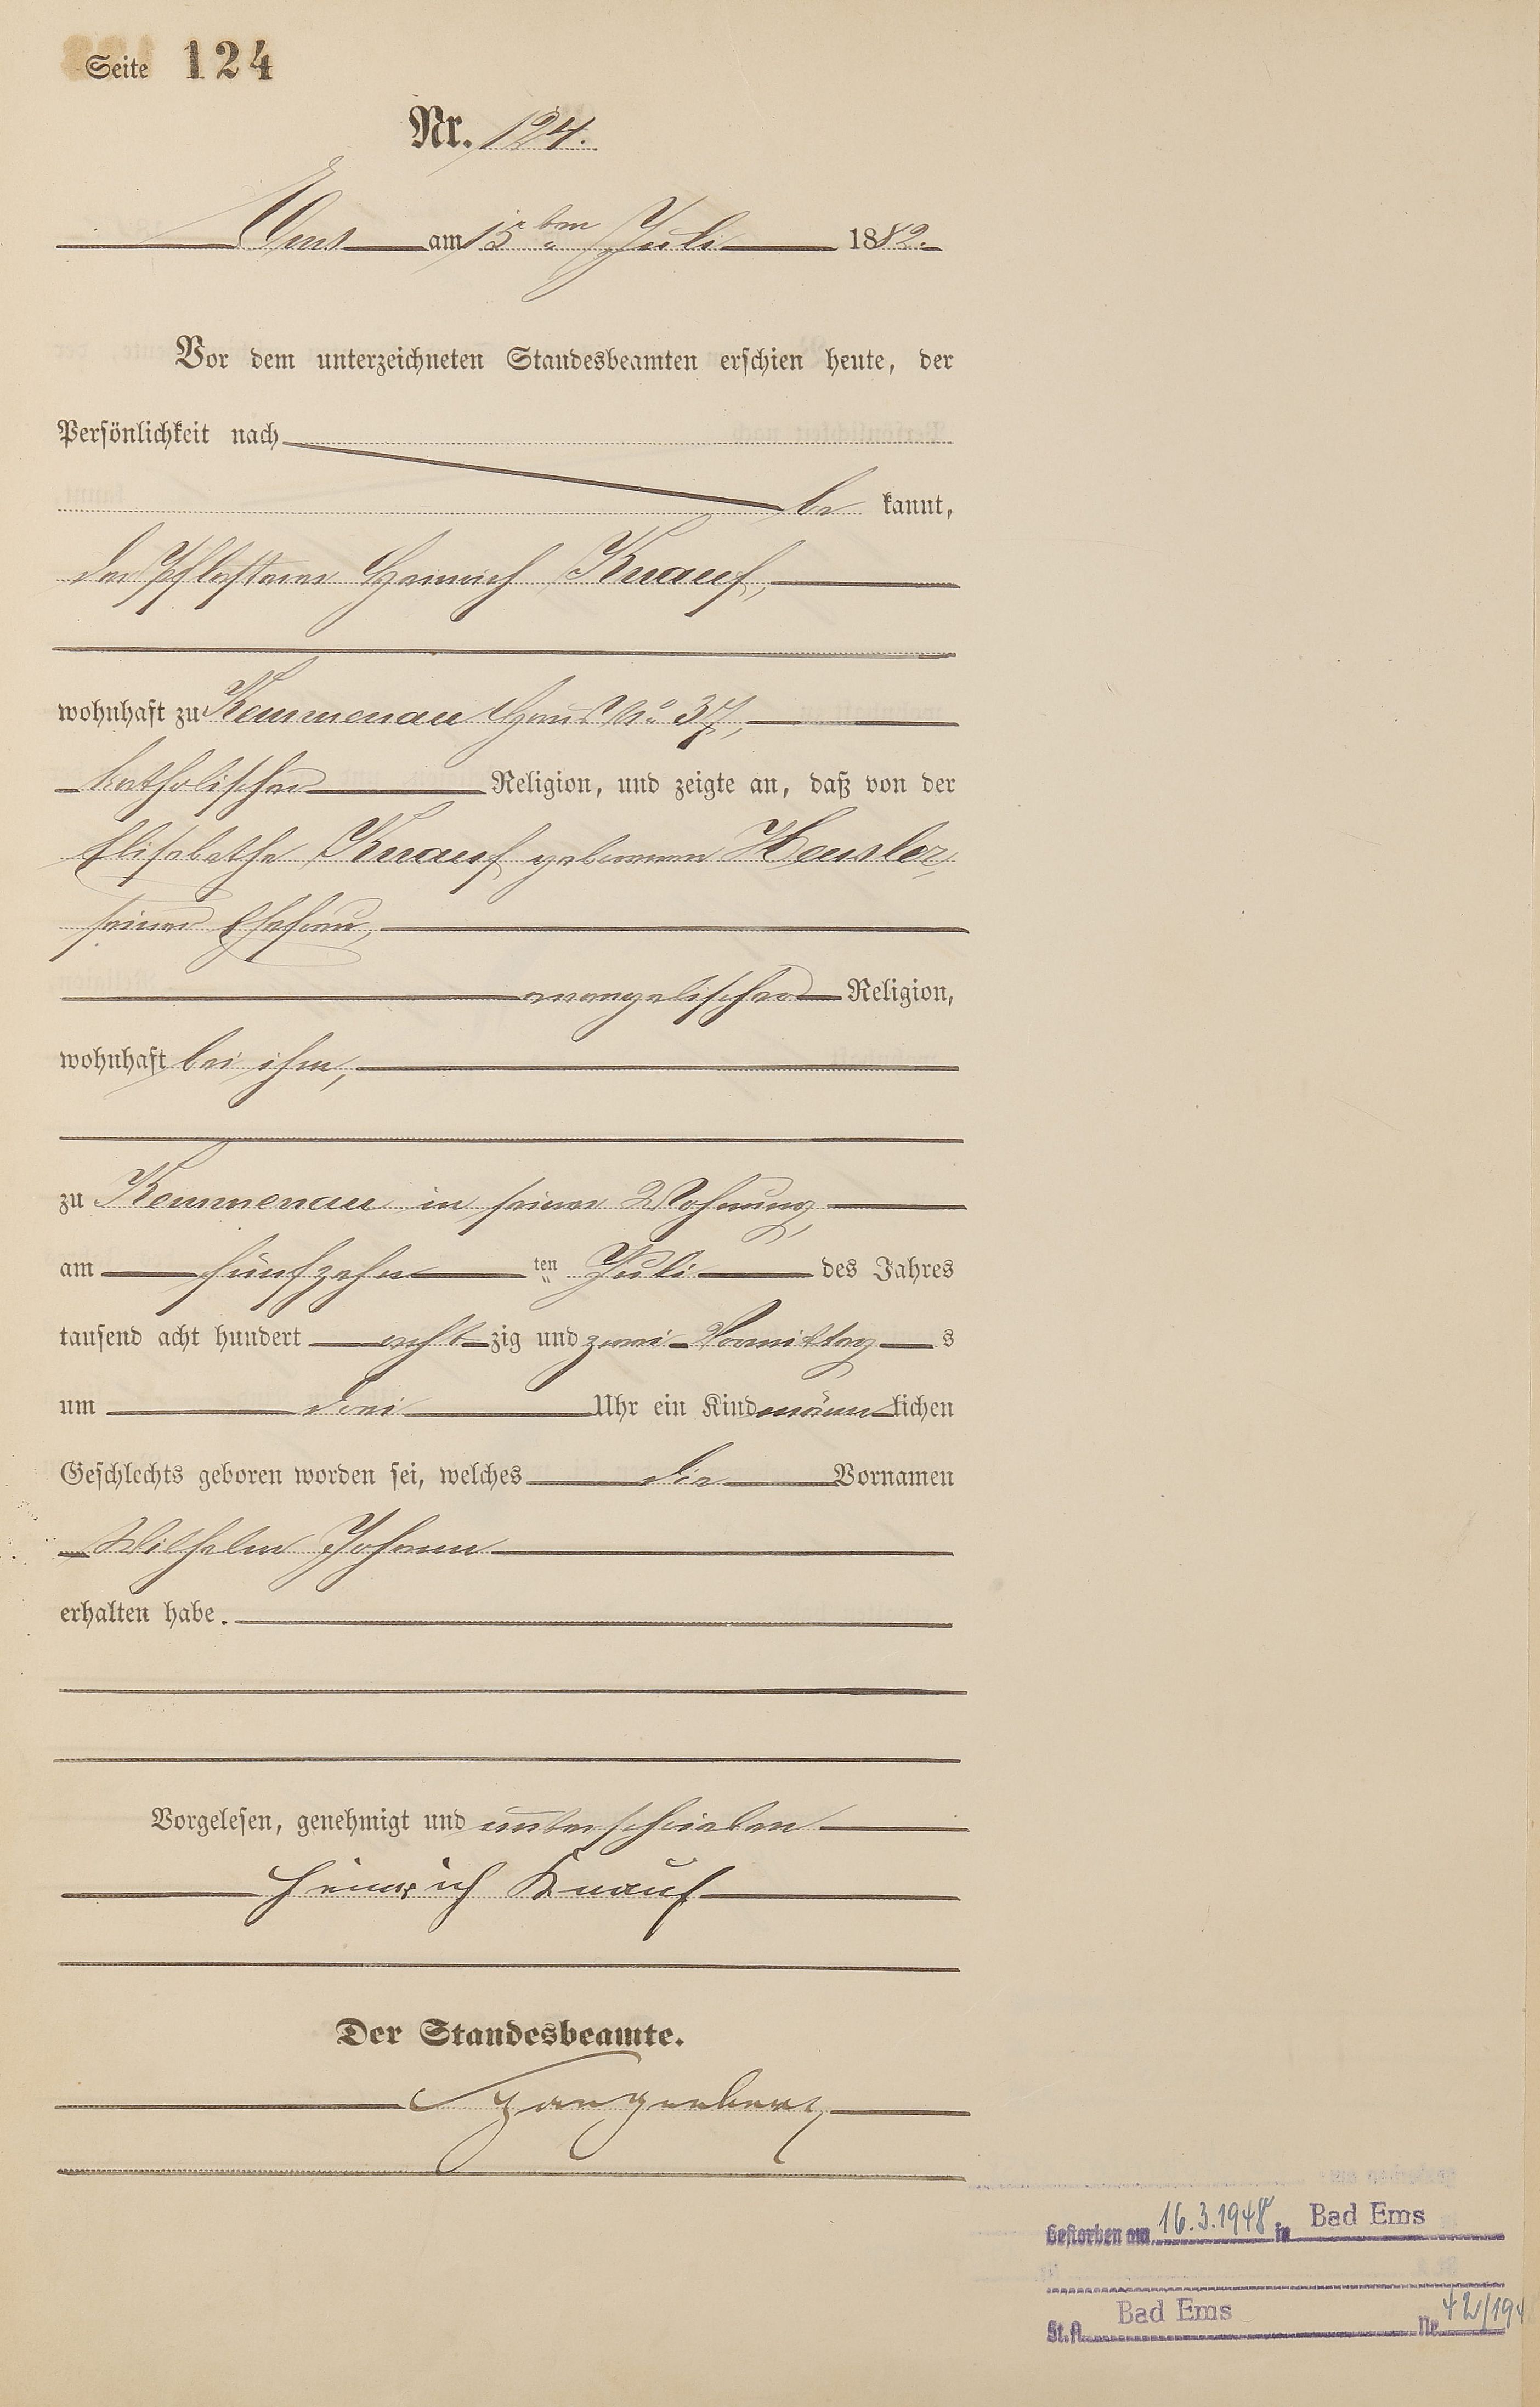 Seite 124
Nr. 124.
Ems am 15ten Juli 1882.
Vor dem unterzeichneten Standesbeamten erschien heute, der
Persönlichkeit nach
be kannt,
der Pflasterer Heinrich Knauf,
wohnhaft zu Kemmenau Haus No 37,
katholischer Religion, und zeigte an, daß von der
Elisabethe Knauf geborenen Heusler,
seiner Ehefrau,
evangelischer Religion,
wohnhaft bei ihm,
zu Kemmenau in seiner Wohnung,
am fünfzehn ten Juli des Jahres
tausend acht hundert acht zig und zwei Vormittag s
um drei Uhr ein Kind männ lichen
Geschlechts geboren worden sei, welches die Vornamen
Wilhelm Johann
erhalten habe.
Vorgelesen, genehmigt und unterschrieben
Heinrich Knauf
Der Standesbeamte.
Gestorben am 16.3.1948 in Bad Ems
St.A. Bad Ems Nr. 42/194